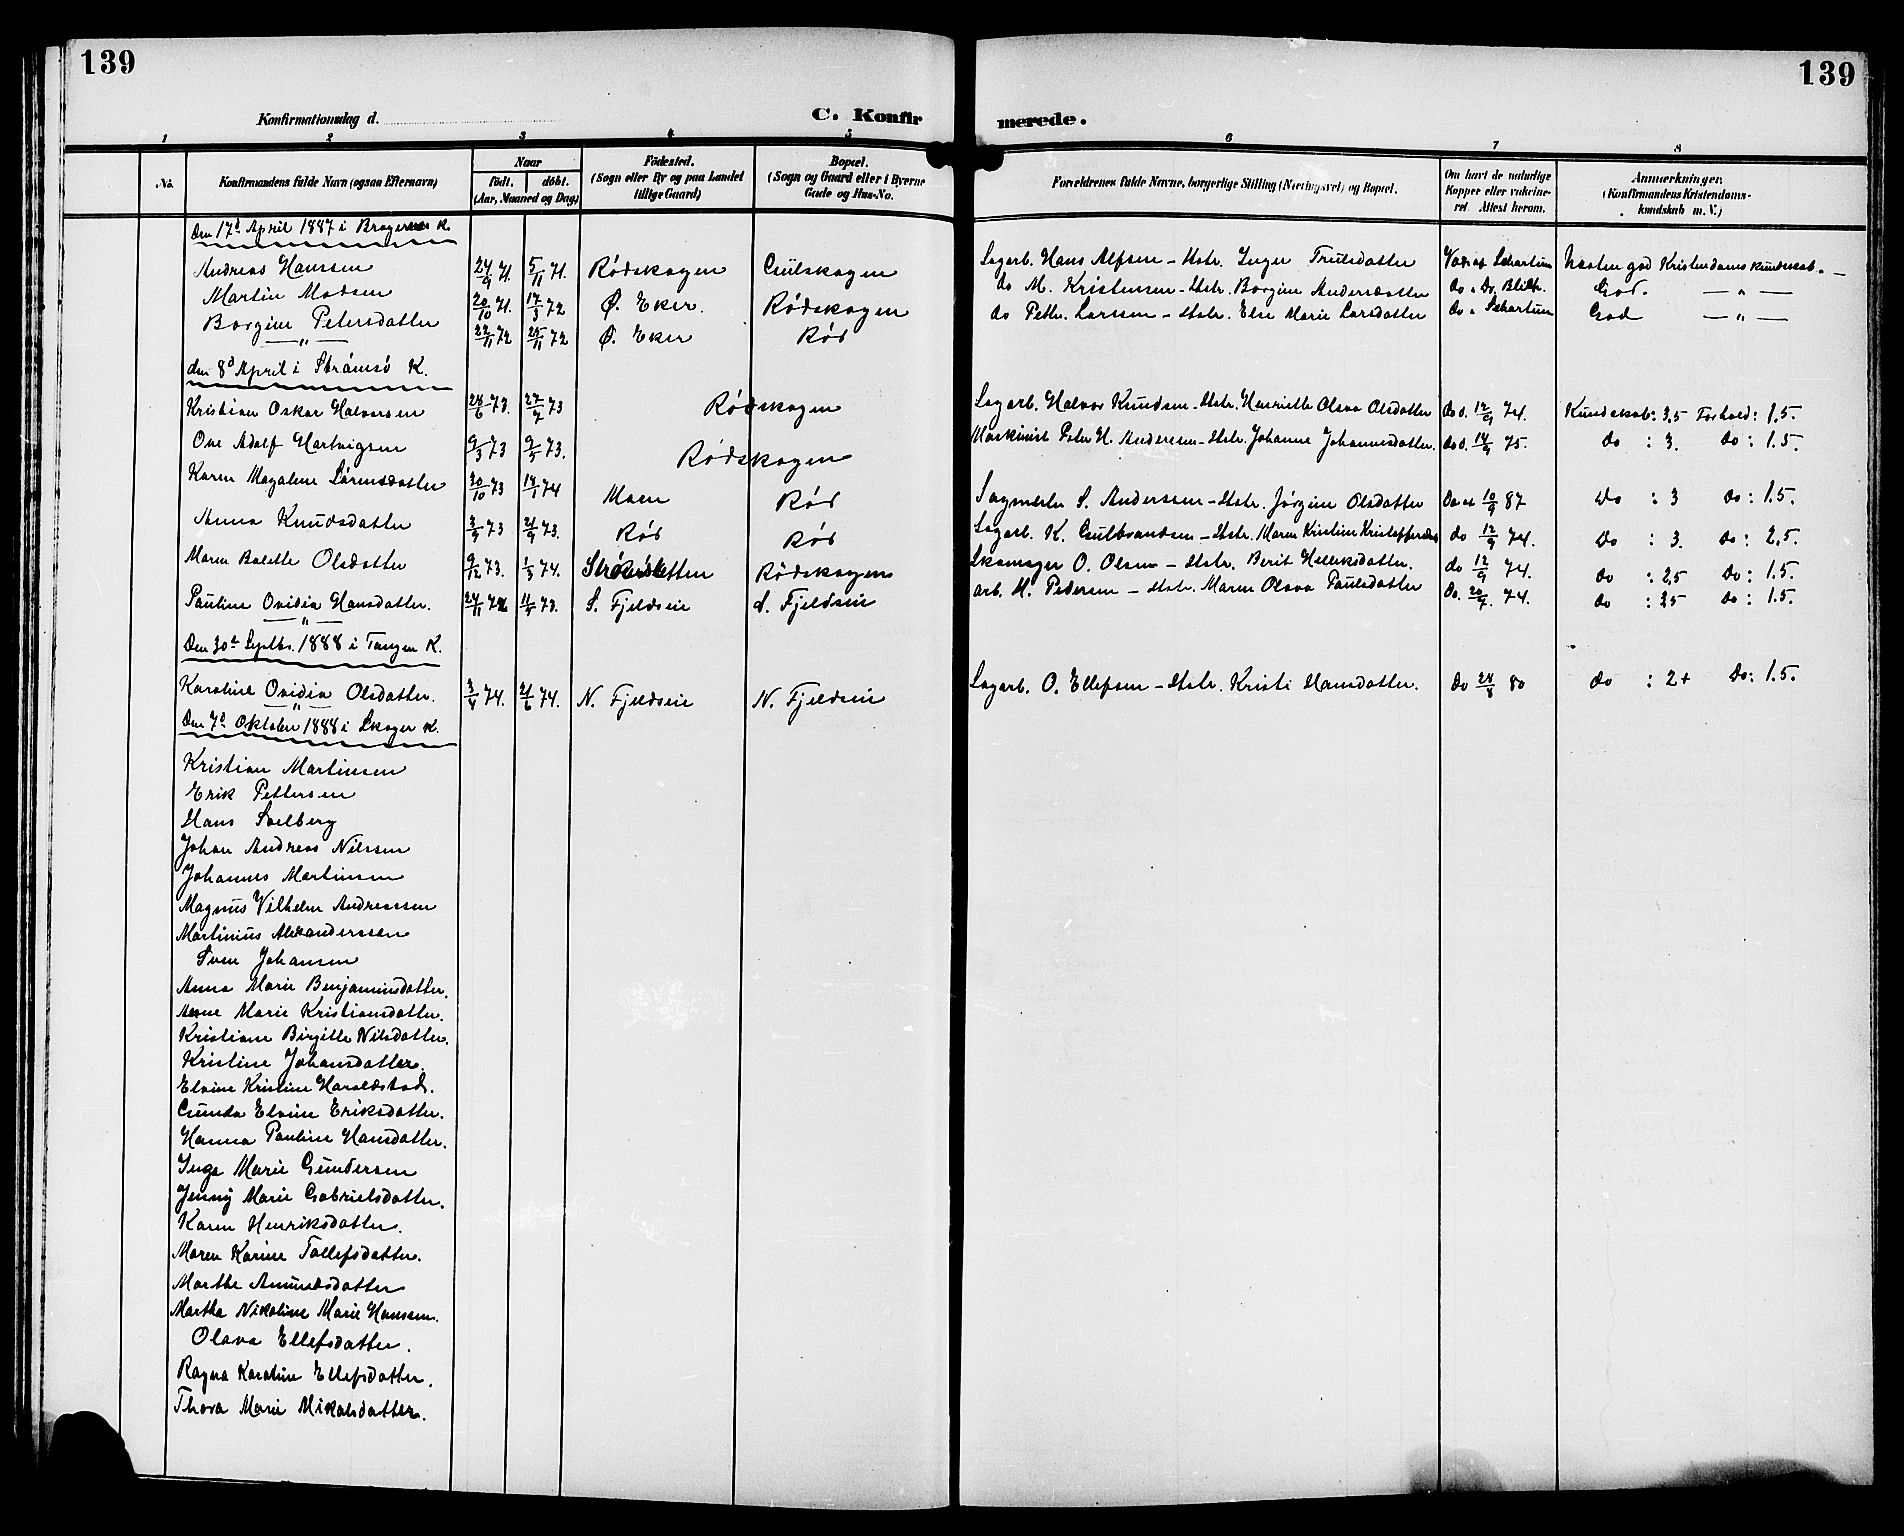 139
139
Konfirmationsdag d.
C. Konfir
merede.
1 2 3 4 5 6 7 8
No.
Konfirmandens fulde Navn (ogsaa Efternavn)
Naar
født. døbt.
(Aar, Maaned og Dag)
Fødested.
(Sogn eller By og paa Landet
tillige Gaard)
Bopæl.
(Sogn og Gaard eller i Byerne
Gade og Hus-No.
Forældrenes fulde Navne, borgerlige Stilling (Næringsvei) og Bopæl.
Om havt de naturlige
Kopper eller vakcine-
ret. Attest herom.
Anmærkninger.
(Konfirmandens Kristendoms-
kundskab m. V.)
Den 17d April 1887 i Bragernes K.
Andreas Hanssen 24/9 71. 5/11 71. Rødskogen Gulskogen Sagarb. Hans Alfsen – Hstr. Inger Trulsdatter Vac. af Schartum Næsten god Kristendomskundskab. –
Martin Madsen 20/10 71. 17/3 72 Ø. Eker. Rødskogen do M. Kristensen – Hstr. Borgine Andersdatter do " Dr. God. – " –
Borgine Petersdatter 22/11 72 25/11 72 Ø. Eker Rød do Petter Larssen – Hstr. Else Marie Larsdatter do " Schartum God – " –
– " –
den 8d April i Strømsø K.
Kristian Oskar Halvorsen 28/6 73. 27/7 73 Rødskogen Sagarb. Halvor Knudsen – Hstr. Henriette Olava Olsdatter do d. 12/9 74. Kundskab: 3,5 Forhold: 1.5.
Ove Adolf Hartvigsen 9/3 73 9/5 73. Rødskogen Maskinist Peter H. Andersen – Hstr. Johanne Johannesdatter. do d. 14/9 75. do : 3. do : 1.5.
Karen Magalene Sørensdatter 30/10 73 18/1 74 Moen Rød Sagmester S. Anderssen – Hstr. Jørgine Olsdatter do 10/9 87 do : 3 do : 1.5.
Anna Knudsdatter 3/9 73 21/9 73. Rød Rød Sagarb. K. Gulbrandsen – Hstr. Maren Kristine do 12/9 74. do : 3. do : 2,5.
Maren Balette Olsdatter 9/12 73. 1/3 74. Rødskogen Skomager O. Olsen – Hstr. Berit Helleksdatter. do 12/9 74. do : 2,5 do : 1.5.
Pauline Ovidia Hansdatter. S. Fjeldseie S. Fjeldseie arb. H. Pedersen – Hstr. Maren Olava Paulsdatter do. 20/9. 74. do : 25 do : 1.5.
– " –
Den 30te Septbr. 1888 i Tangen K.
Karoline Ovidia Olsdatter. 3/4 74. 21/6 74. N. Fjeldseie N. Fjeldseie Sagarb. O. Ellefsen – Hstr. Kristi Hansdatter. do 24/8 80 do : 2+ do : 1.5.
– " –
Den 7d Oktober 1888 i Skoger K.
Kristian Martinsen
Erik Pettersen
Hans Solberg
Johan Andreas Nilssen
Johannes Martinsen
Magnus Vilhelm Andreassen
Martinius Alexanderssen
Sven Johansen
Anna Marie Benjaminsdatter.
Anne Marie Kristiansdatter.
Kristiane Birgitte Nilsdatter.
Kristine Johansdatter.
Elvine Kristine Haroldstad.
Gunda Elvine Eriksdatter.
Hanna Pauline Hansdatter.
Inga Marie Gundersen
Jenny Marie Gabrielsdatter.
Karen Henriksdatter.
Maren Karine Tollefsdatter.
Marthe Amundsdatter
Martha Nikoline Marie Hansen.
Olava Ellefsdatter.
Ragna Karoline Ellefsdatter.
Thora Marie Mikalsdatter.